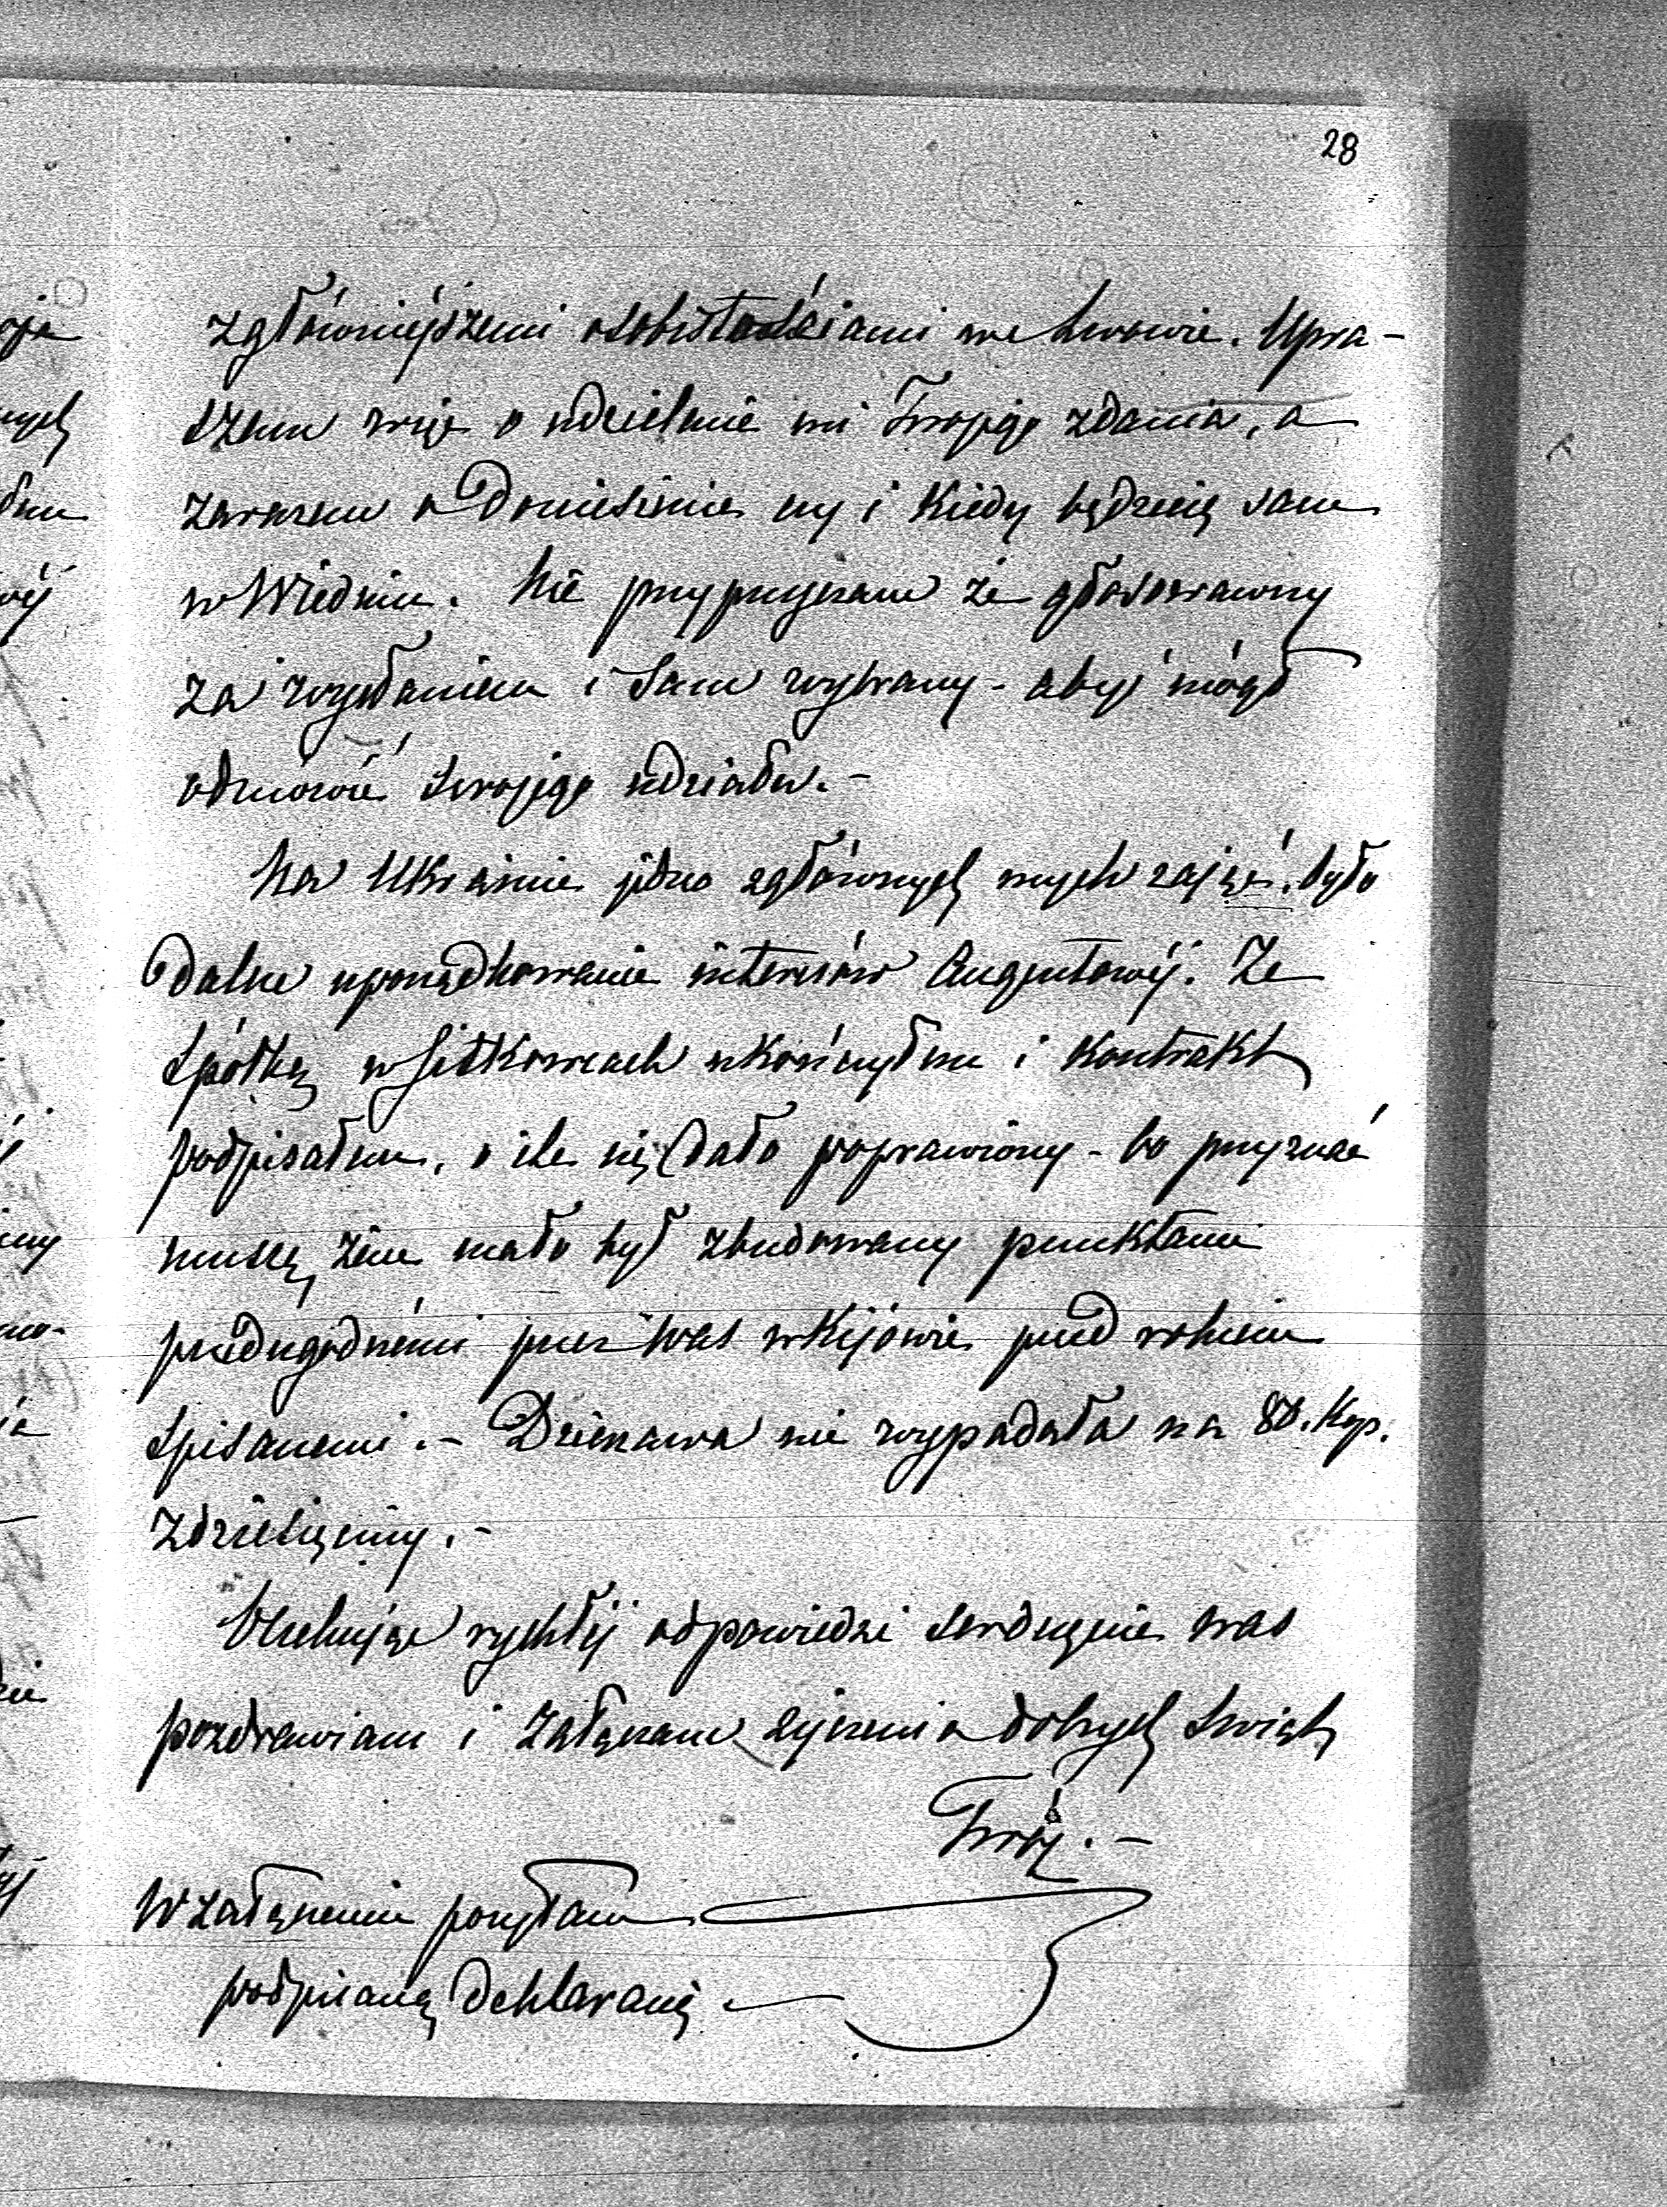 28
zgłówniejszemi osobistościami we Lwowie. Upra-
szam więc o udzielenie mi Twojego zdania, a
zarazem o doniesienie czy i kiedy będziesz sam
w Wiedniu. Nie przypuszczam że głosowawszy
za wysłaniem i sam wybrany - abyś mógł
odmówić swojego udziału. -
Na Ukrainie jedno zgłównych mych zajęć było
dalsze uporządkowanie interesów Augustowej. Ze
spółką w Sitkowcach ukończyłem i kontrakt
podpisałem, o ile się dało poprawiony - bo przyznać
muszę żem mało był zbudowany punktami
przedugodnemi przez was w Kijowie przed rokiem
spisanemi. - Dzierżawa nie wypadała na 80. Kop.
z dziesięciny. -
Oczekując rychłej odpowiedzi serdecznie was
pozdrawiam i załączam życzenia dobrych Świąt
Twój. -
W załączeniu posyłam
podpisaną deklarację